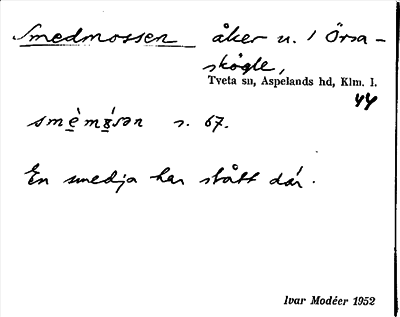 Smedmossen åker u. 1 Örsa-
skögle,
Tveta sn, Aspelands hd, Klm. l.
44
s. 67.
En smedja har stått där.
Ivar Modéer 1952